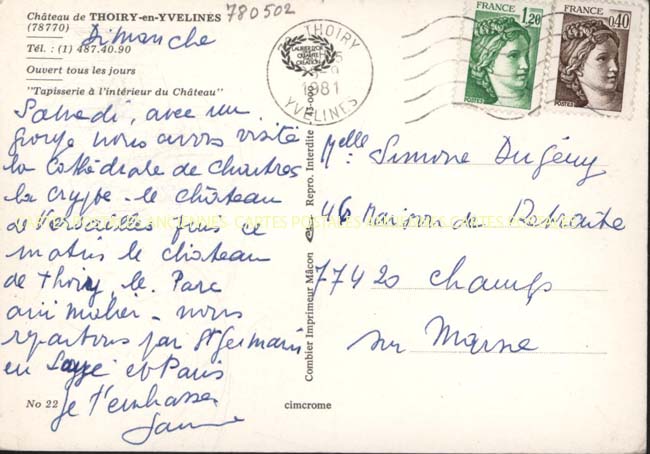 Château de THOIRY-en-YVELINES
(78770)
780502
Dimanche
Tél. : (1) 487.40.90
Ouvert tous les jours
"Tapisserie à l'intérieur du Château"
78 THOIRY
1981
YVELINES
FRANCE
1,20
POSTES
FRANCE
0,40
POSTES
Samedi, avec un
groupe nous avons visité
la Cathédrale de Chartres
la crypte - le château
de Versailles puis ce
matin le château
de Thoiry, le Parc
animalier - nous
repartons par St Germain
en Laye et Paris
Je t'embrasse
No 22
Melle Simone Dugény
46 Maison de Retraite
77420 Champs
sur Marne
Combier Imprimeur Mâcon
Repro. Interdite
cimcrome
CARTES POSTALES ANCIENNES